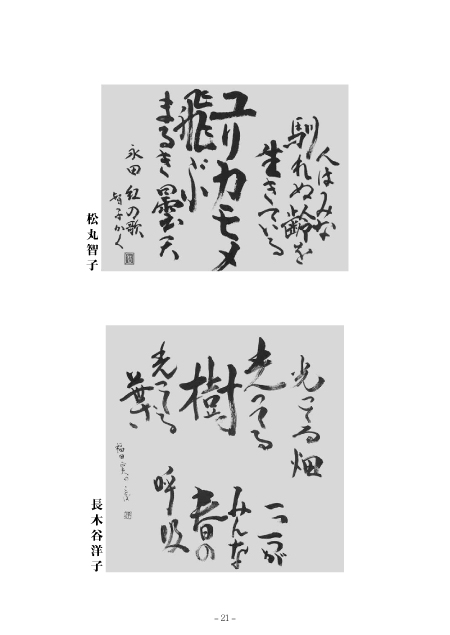 人はみな
馴れぬ齢を
生きている
ユリカモメ
飛ぶ
まるき曇天
永田 紅の歌
智子かく
松丸智子
光ってる畑
光ってる
樹
光ってる
葉
一つ一つが
みんな
春の
呼吸
長木谷洋子
– 21 –